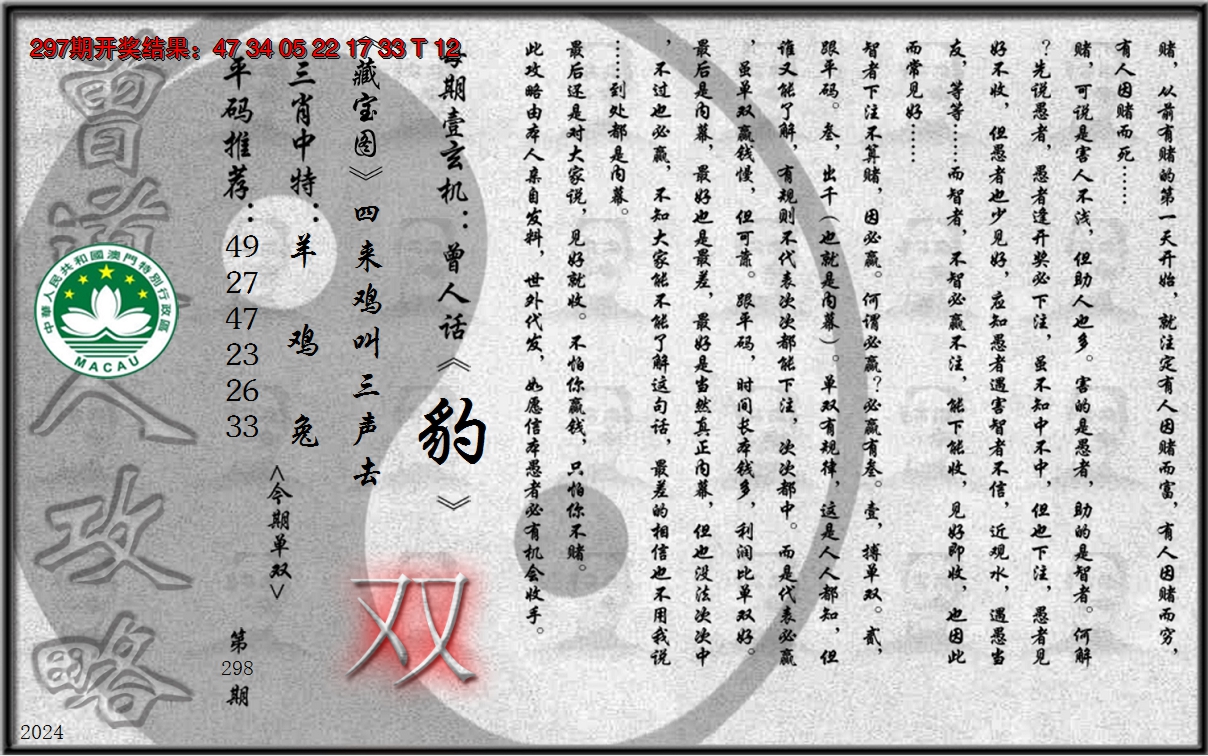 297期开奖结果：47 34 05 22 17 33 T 12
赌，从前有赌的第一天开始，就注定有人因赌而富，有人因赌而穷，
有人因赌而死……
赌，可说是害人不浅，但助人也多。害的是愚者，助的是智者。何解
？先说愚者，愚者逢开奖必下注，虽不知中不中，但也下注，愚者见
好不收，但愚者也少见好，应知愚者遇害智者不信，近观水，遇愚当
友，等等……而智者，不智必赢不注，能下能收，见好即收，也因此
而常见好……
智者下注不算赌，因必赢。何谓必赢？必赢有叁。壹，搏单双。贰，
跟平码。叁，出千（也就是内幕）。单双有规律，这是人人都知，但
谁又能了解，有规则不代表次次都能下注，次次都中。而是代表必赢
，虽单双赢钱慢，但可靠。跟平码，时间长本钱多，利润比单双好。
最后是内幕，最好也是最差，最好是当然真正内幕，但也没法次次中
，不过也必赢，不知大家能不能了解这句话，最差的相信也不用我说
……到处都是内幕。
最后还是对大家说，见好就收。不怕你赢钱，只怕你不赌。
此攻略由本人亲自发料，世外代发，如愿信本愚者必有机会收手。
每期壹玄机：曾人话《豹》
《藏宝图》四来鸡叫三声去
双
三肖中特：羊 鸡 兔
<今期单双>
平码推荐：49 27 47 23 26 33
第298期
曾道人攻略
中華人民共和國澳門特別行政區
MACAU
2024